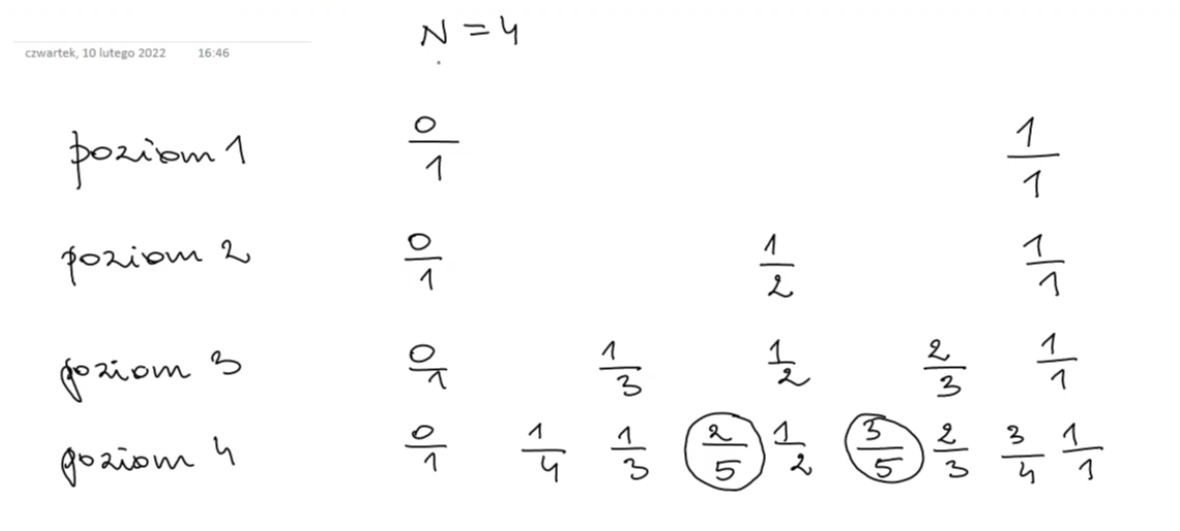 N = 4
czwartek, 10 lutego 2022 16:46
poziom 1 0/1 1/1
poziom 2 0/1 1/2 1/1
poziom 3 0/1 1/3 1/2 2/3 1/1
poziom 4 0/1 1/4 1/3 2/5 1/2 3/5 2/3 3/4 1/1